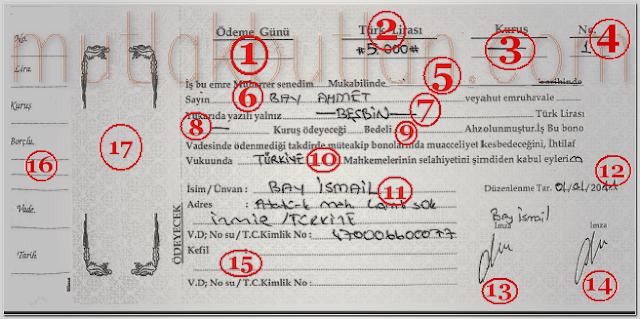 Ödeme Günü Türk Lirası Kuruş No.
1 2 #5.000# 3 4 1
mutlakbutlan.com
No.
Lira
Kuruş
Borçlu
16
Vade.
Tarih
17
İş bu emre Muharrer senedim Mukabilinde 5 tarihinde
Sayın 6 BAY AHMET veyahut emruhavale
Yukarıda yazılı yalnız —BEŞBİN— 7 Türk Lirası
8 — Kuruş ödeyeceği Bedeli 9 Ahzolunmuştur.İş Bu bono
Vadesinde ödenmediği takdirde müteakip bonolarında muacceliyet kesbedeceğini, İhtilaf
Vukuunda TÜRKİYE 10 Mahkemelerinin selahiyetini şimdiden kabul eylerim 12
İsim / Ünvan : BAY İSMAİL 11 Düzenlenme Tar.
Adres : Atatürk mah
İzmir /TÜRKİYE
Bay ismail
V.D; No su / T.C.Kimlik No : 47000660077
İmza İmza
Kefil
15
V.D; No su / T.C.Kimlik No :
13 14
ÖDEYECEK